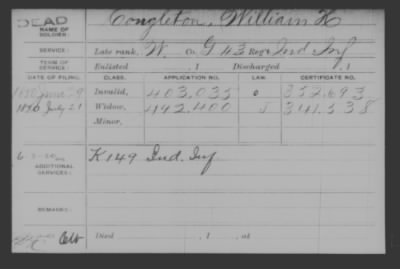 DEAD
NAME OF SOLDIER: Congleton, William H
SERVICE: Late rank, W. Co. G 43 Reg't Ind Inf
TERM OF SERVICE: Enlisted , 1 Discharged , 1
DATE OF FILING. CLASS. APPLICATION NO. LAW. CERTIFICATE NO.
1880 Invalid, 403.035 352.693
1890 July 21 Widow, 442.400 341.338
Minor,
ADDITIONAL SERVICES: K 149 Ind. Inf
REMARKS:
Died , 1 , at